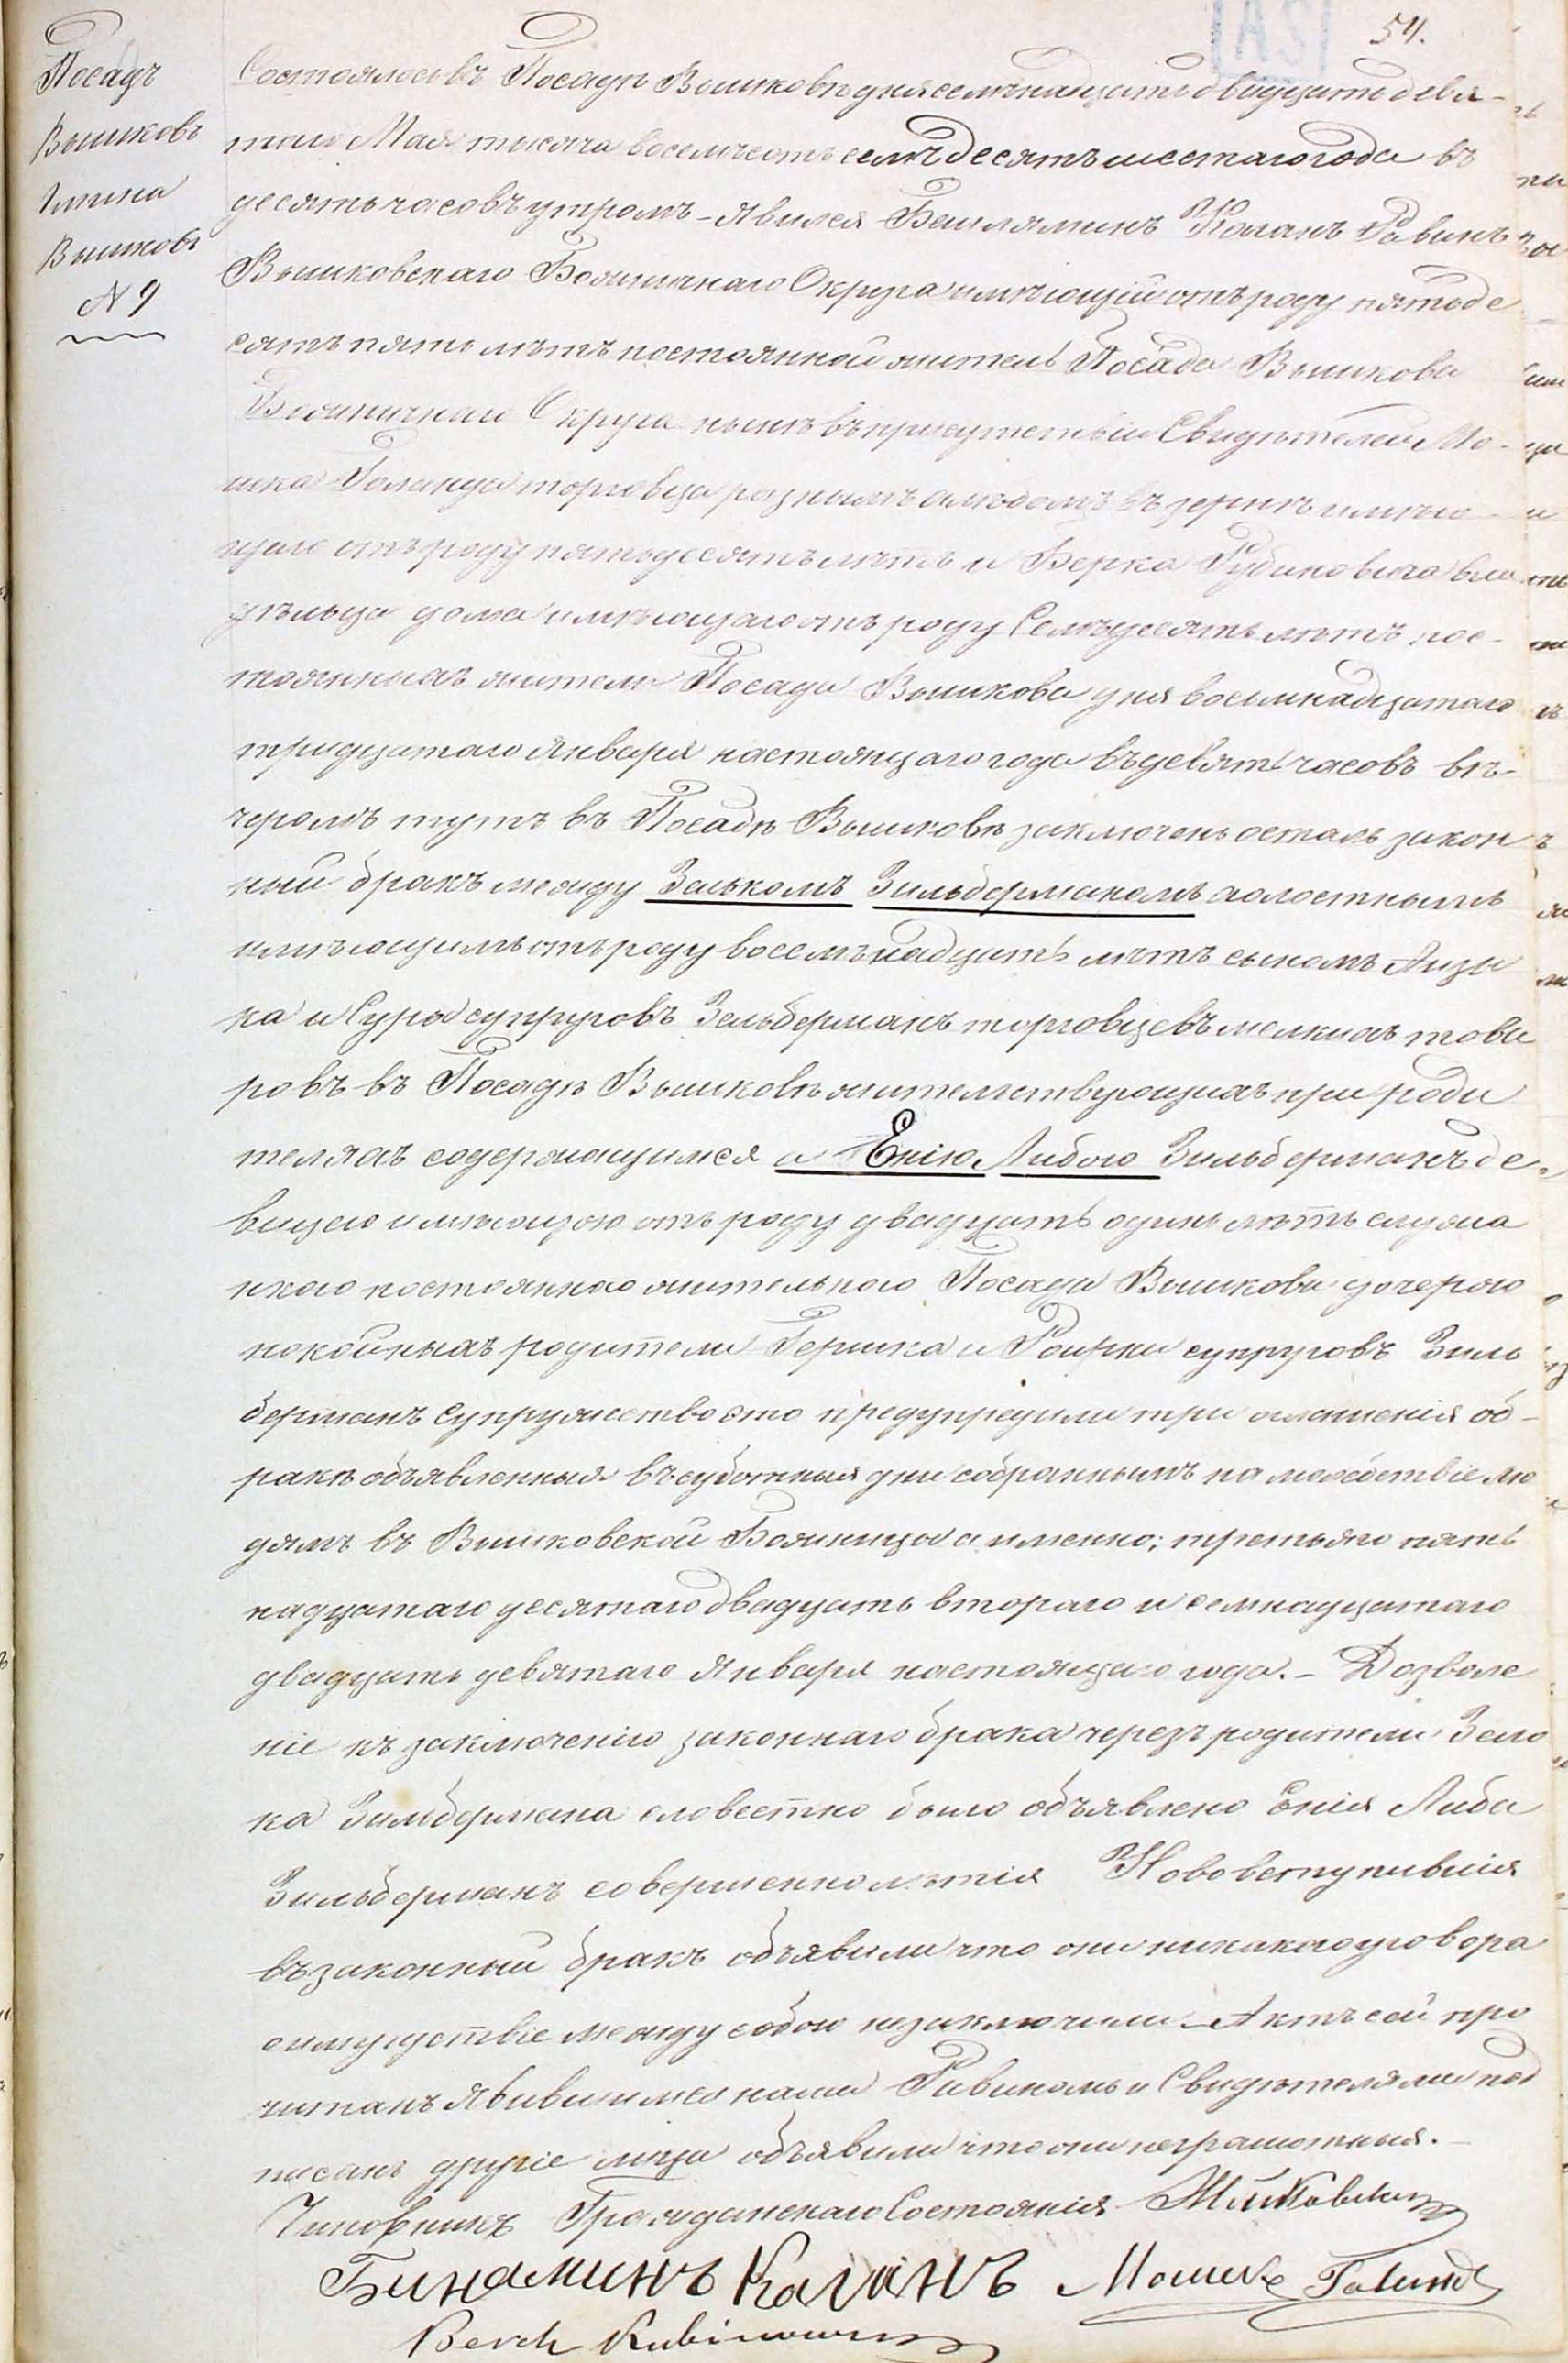 54.
Посадъ
Вышковъ
Гмина
Вышковъ
№ 9
Состоялось въ Посадѣ Вышковѣ дня семьнадцатаго двадцать девя-
таго Мая тысяча восемьсотъ семьдесятъ шестаго года въ
десять часовъ утромъ - Явился Беніяминъ Коганъ Равинъ
Вышковскаго Божничнаго Округа имѣющій отъ роду пятьде
сятъ пять лѣтъ постоянной житель Посада Вышкова
Божничнаго Округа нынѣ въ присутствіи Свидѣтелей Мо-
шка Голанда торговца разнымъ хлѣбомъ въ зернѣ имѣю-
щаго отъ роду пятьдесятъ лѣтъ и Берка Рубиновича вла
дѣльца дома имѣющаго отъ роду Семьдесятъ лѣтъ пос-
тоянныхъ жители Посада Вышкова дня восемнадцатаго
тридцатаго Января настоящаго года въ девять часовъ вѣ-
черомъ тутъ въ Посадѣ Вышковѣ заключенъ осталъ закон
ный бракъ между Зелькомъ Зильберманомъ холостымъ
имѣющимъ отъ роду восемьнадцать лѣтъ сыномъ Айзы
ка и Суры супруговъ Зельберманъ торговцевъ мелкихъ това
ровъ въ Посадѣ Вышковѣ жительствующихъ при роди
теляхъ содержающимся а Енію Либою Зильберманъ де-
вицею имѣющою отъ роду двадцать одинъ лѣтъ служа
нкою постоянною жительною Посада Вышкова дочерою
покойныхъ родители Гершка и Ройзки супруговъ Зиль
берманъ Супружество это предупредили три оглашенія об-
ракѣ объявленныя въ суботныя дни собраннымъ на молебствіе лю
дямъ въ Вышковской Божницы а именно; третьяго пять
надцатаго десятаго двадцать втораго и семнадцатаго
двадцать девятаго Января настоящаго года. - Дозволе
ніе къ заключенію законнаго брака черезъ родители Зель
ка Зильбермана словестно было объявлено Енія Либа
Зильберманъ совершеннолѣтія Нововступившія
въ законный бракъ объявили что они никакаго уговора
о имуществіе между собою незаключили - Актъ сей про
читанъ явившимся нами Равиномъ и Свидѣтелями под
писанъ другіе лица объявили что они неграмотныя. -
Чиновникъ Гражданскаго Состоянія
Бинаминъ Каганъ Мошекъ Голанд
Berek Rubinowicz